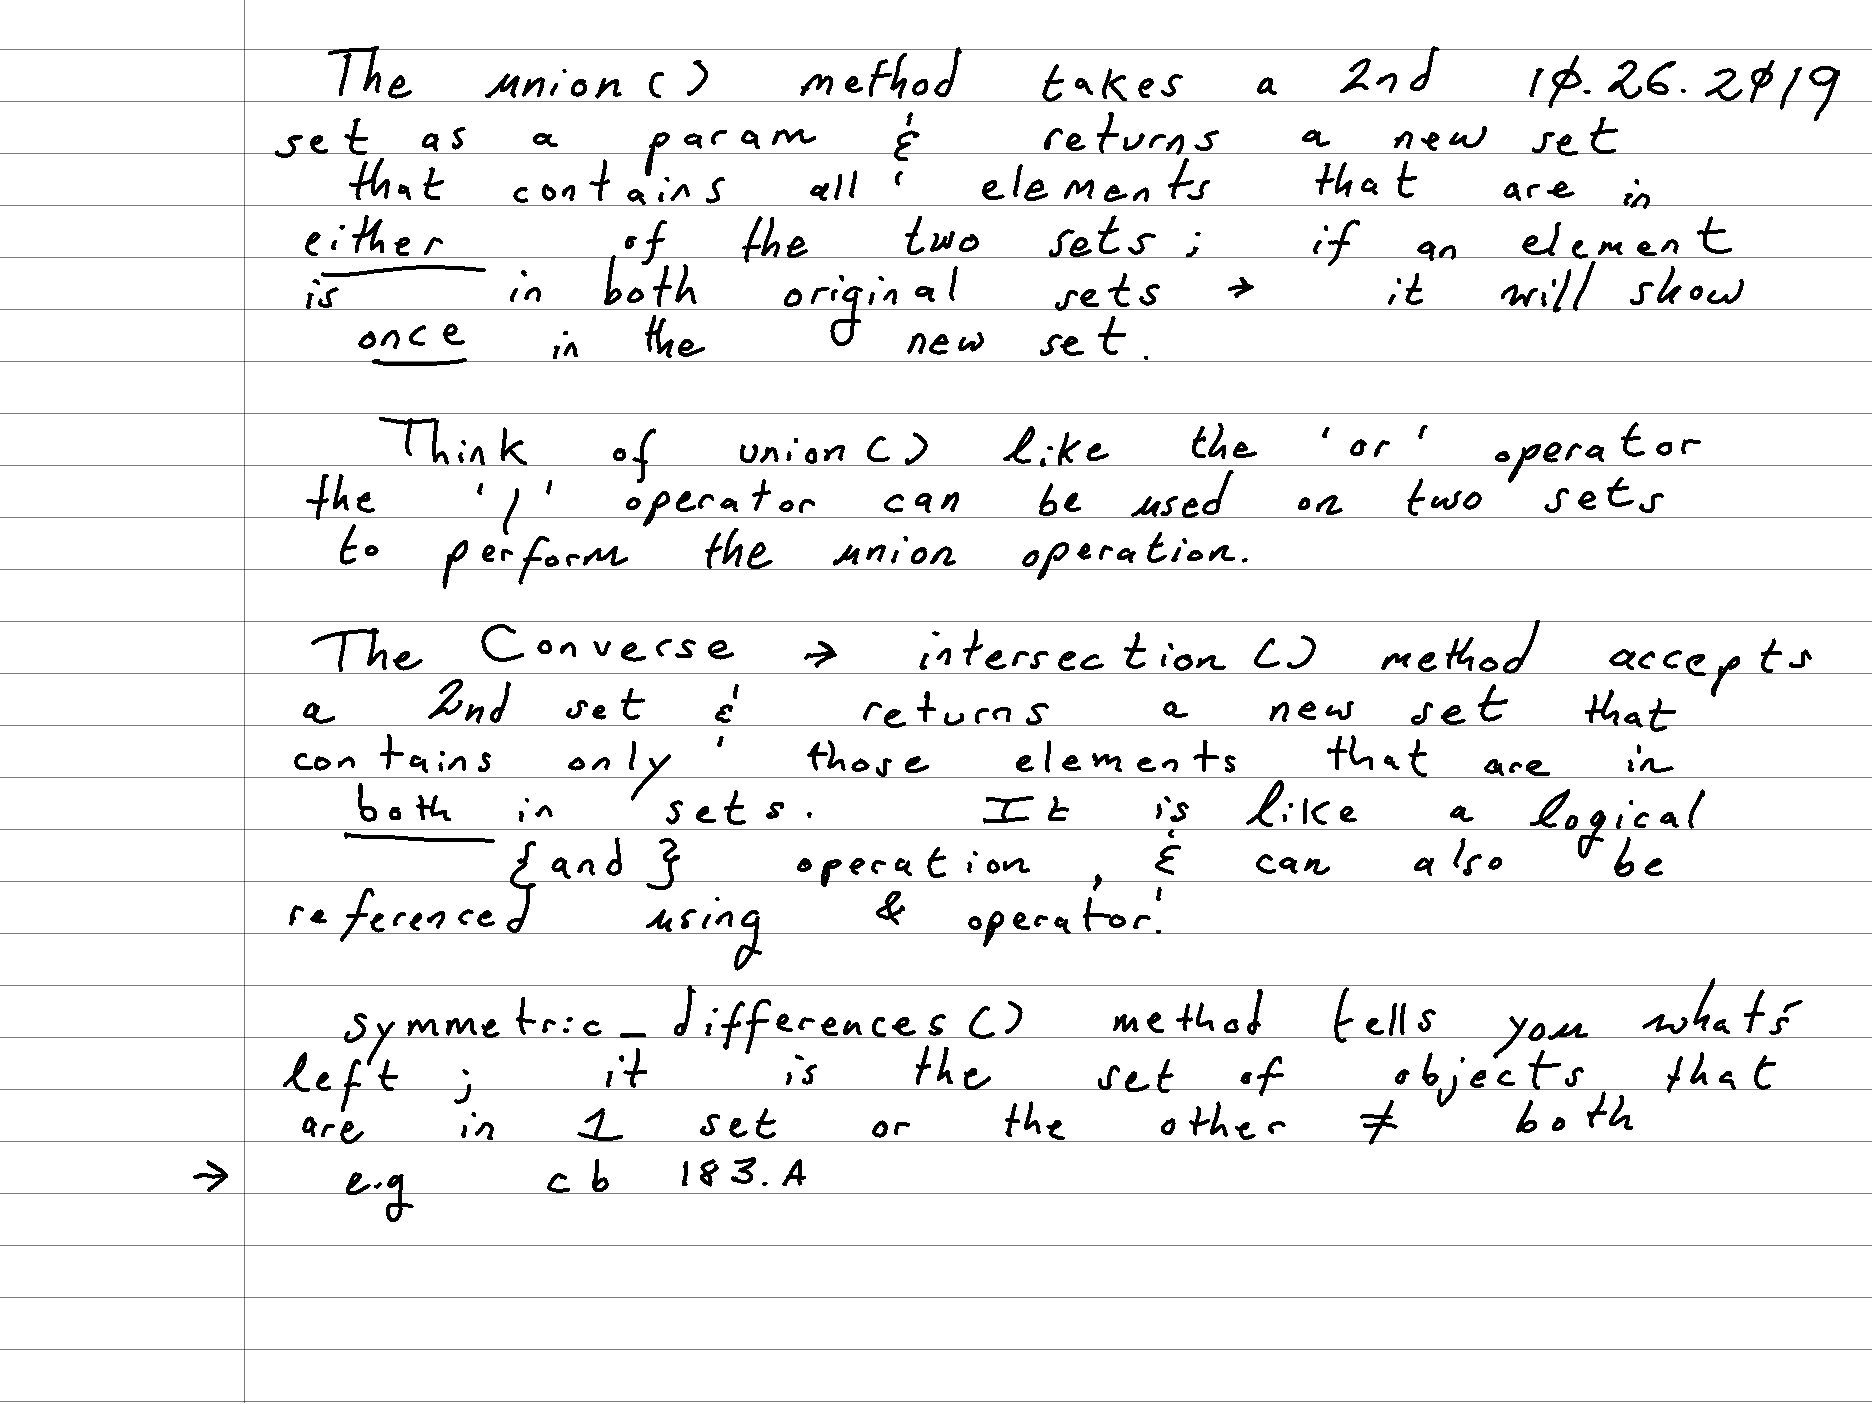 The union() method takes a 2nd 10.26.2019
set as a param & returns a new set
that contains all elements that are in
either of the two sets; if an element
is in both original sets → it will show
once in the new set.
Think of union() like the 'or' operator
the '|' operator can be used on two sets
to perform the union operation.
The Converse → intersection() method accepts
a 2nd set & returns a new set that
contains only those elements that are in
both in sets. It is like a logical
{and} operation, & can also be
referenced using & operator.
symmetric_differences() method tells you what's
left; it is the set of objects that
are in 1 set or the other ≠ both
→ e.g cb 183.A